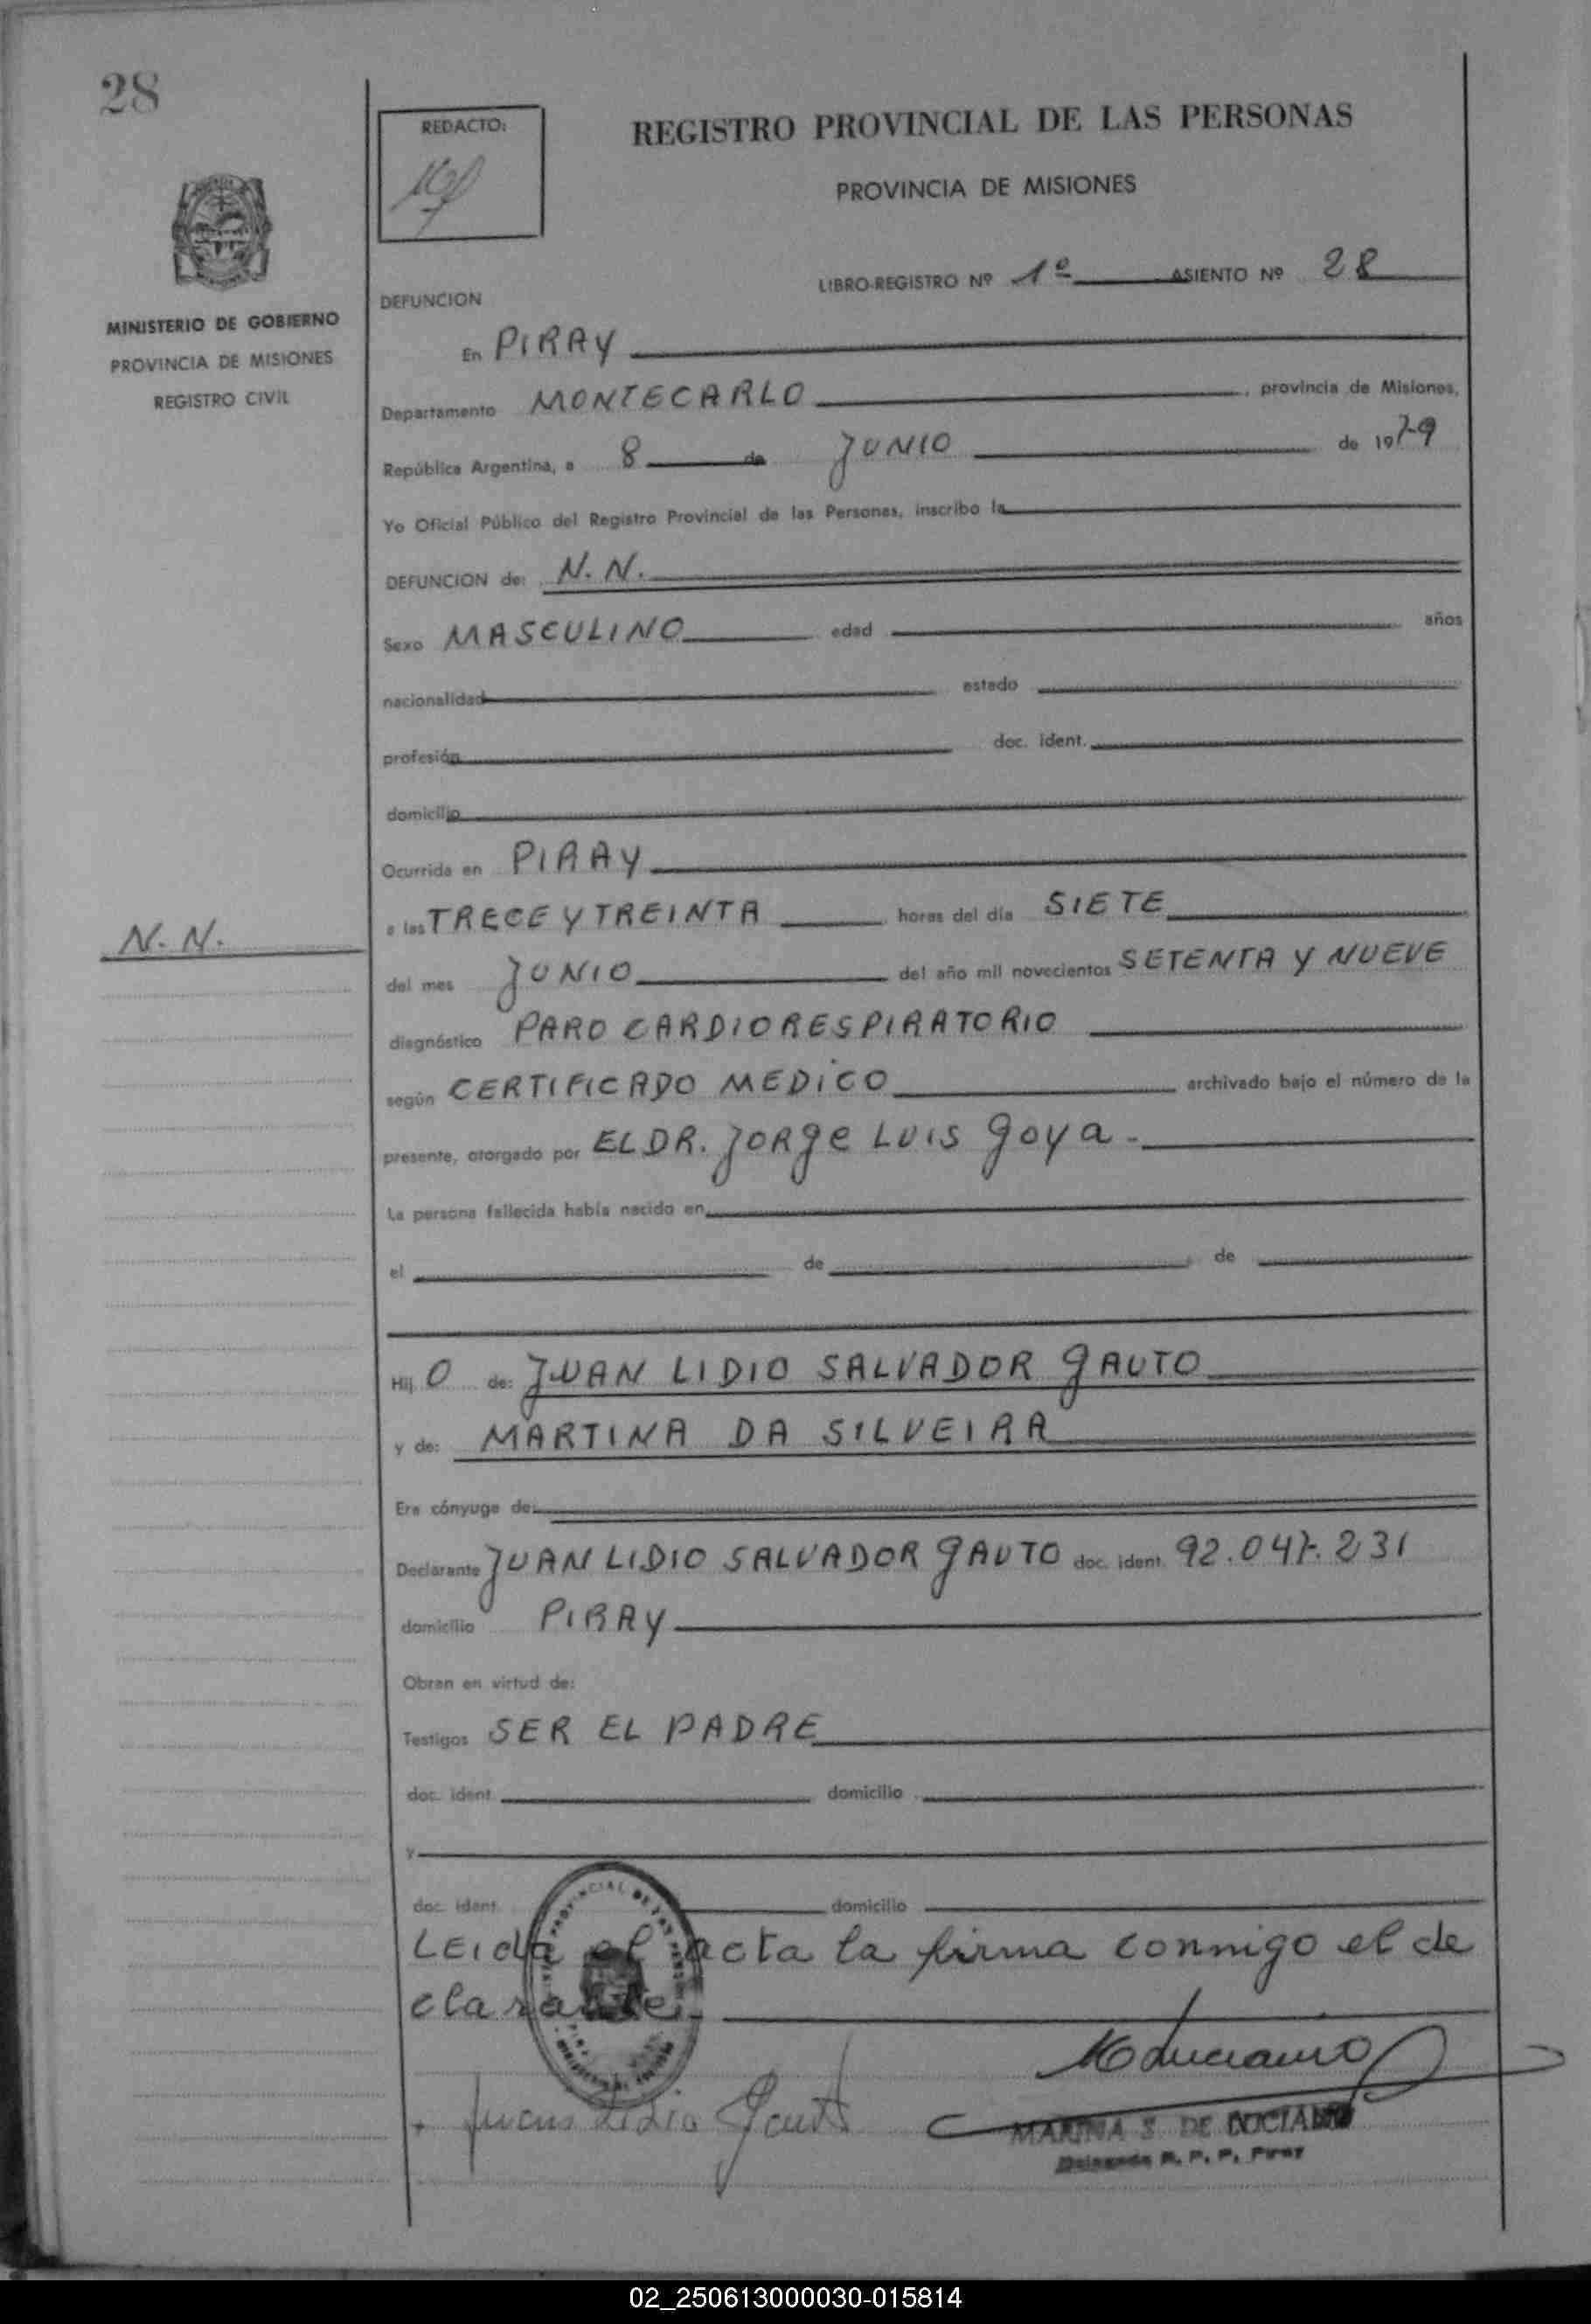 28
REDACTO:
REGISTRO PROVINCIAL DE LAS PERSONAS
PROVINCIA DE MISIONES
LIBRO-REGISTRO Nº 1º ASIENTO Nº 28
MINISTERIO DE GOBIERNO
PROVINCIA DE MISIONES
REGISTRO CIVIL
DEFUNCION
En PIRAY
Departamento MONTECARLO, provincia de Misiones,
República Argentina, a 8 de JUNIO de 1979
Yo Oficial Público del Registro Provincial de las Personas, inscribo la
DEFUNCION de: N. N.
Sexo MASCULINO edad años
nacionalidad estado
profesión doc. ident.
domicilio
Ocurrida en PIRAY
a las TRECE Y TREINTA horas del día SIETE
N. N.
del mes JUNIO del año mil novecientos SETENTA Y NUEVE
diagnóstico PARO CARDIORESPIRATORIO
según CERTIFICADO MEDICO archivado bajo el número de la
presente, otorgado por EL DR. JORGE LUIS GOYA.-
La persona fallecida había nacido en
el de de
Hij O de: JUAN LIDIO SALVADOR GAUTO
y de: MARTINA DA SILVEIRA
Era cónyuge de:
Declarante JUAN LIDIO SALVADOR GAUTO doc. ident. 92.047.231
domicilio PIRAY
Obran en virtud de:
Testigos SER EL PADRE
doc. ident. domicilio
y
doc. ident. domicilio
Leida el acta la firma conmigo el de
clarante.-
Juan Lidio Gauto
MARINA S. DE LUCIANO
Delegada R. P. P. Piray
02_250613000030-015814